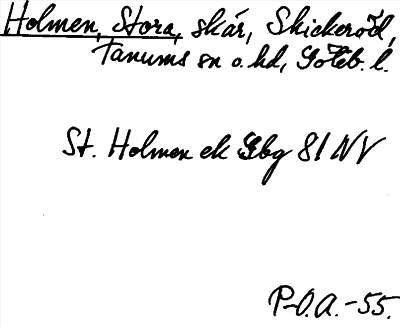 Holmen, Stora, skär, Skickeröd,
Tanums sn o. hd, Göteb. l.
St. Holmen ek Gbg 81 NV
P-O.A. -55.